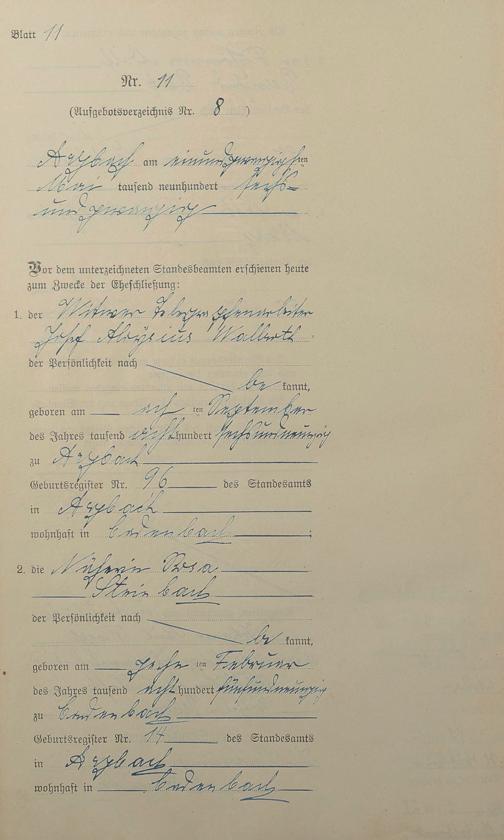 Blatt 11
Nr. 11
(Aufgebotsverzeichnis Nr. 8)
Asbach am einundzwanzigsten
Mai tausend neunhundert sechs-
undzwanzig
Vor dem unterzeichneten Standesbeamten erschienen heute
zum Zwecke der Eheschließung:
1. der Witwer Telegraphenarbeiter
Josef Aloysius Walbroth
der Persönlichkeit nach
be kannt,
geboren am acht ten September
des Jahres tausend acht hundert sechsundneunzig
zu Asbach
Geburtsregister Nr. 96 des Standesamts
in Asbach
wohnhaft in
2. die Näherin Rosa
Steinbach
der Persönlichkeit nach
be kannt,
geboren am zehn ten Februar
des Jahres tausend acht hundert fünfundneunzig
zu
Geburtsregister Nr. 14 des Standesamts
in Asbach
wohnhaft in